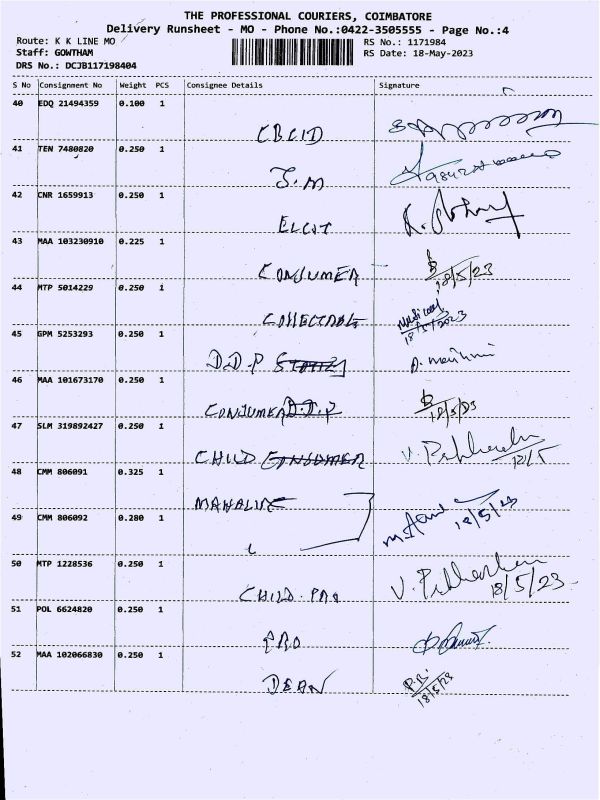 THE PROFESSIONAL COURIERS, COIMBATORE
Delivery Runsheet - MO - Phone No.:0422-3505555 - Page No.:4
Route: K K LINE MO
RS No.: 1171984
Staff: GOWTHAM
RS Date: 18-May-2023
DRS No.: DCJB117198404
S No Consignment No Weight PCS Consignee Details Signature
40 EDQ 21494359 0.100 1
CBCID
41 TEN 7480820 0.250 1
J.M
42 CNR 1659913 0.250 1
ELCOT
43 MAA 103230910 0.225 1
CONSUMER 18/5/23
44 MTP 5014229 0.250 1
COLLECTORATE 18/5/2023
45 GPM 5253293 0.250 1
D.D.P
46 MAA 101673170 0.250 1
CONSUMER 18/5/23
47 SLM 319892427 0.250 1
CHILD
48 CMM 806091 0.325 1
49 CMM 806092 0.280 1
18/5/23
50 MTP 1228536 0.250 1
CHILD. PRO 18/5/23
51 POL 6624820 0.250 1
PRO
52 MAA 102066830 0.250 1
DEAN 18/5/23